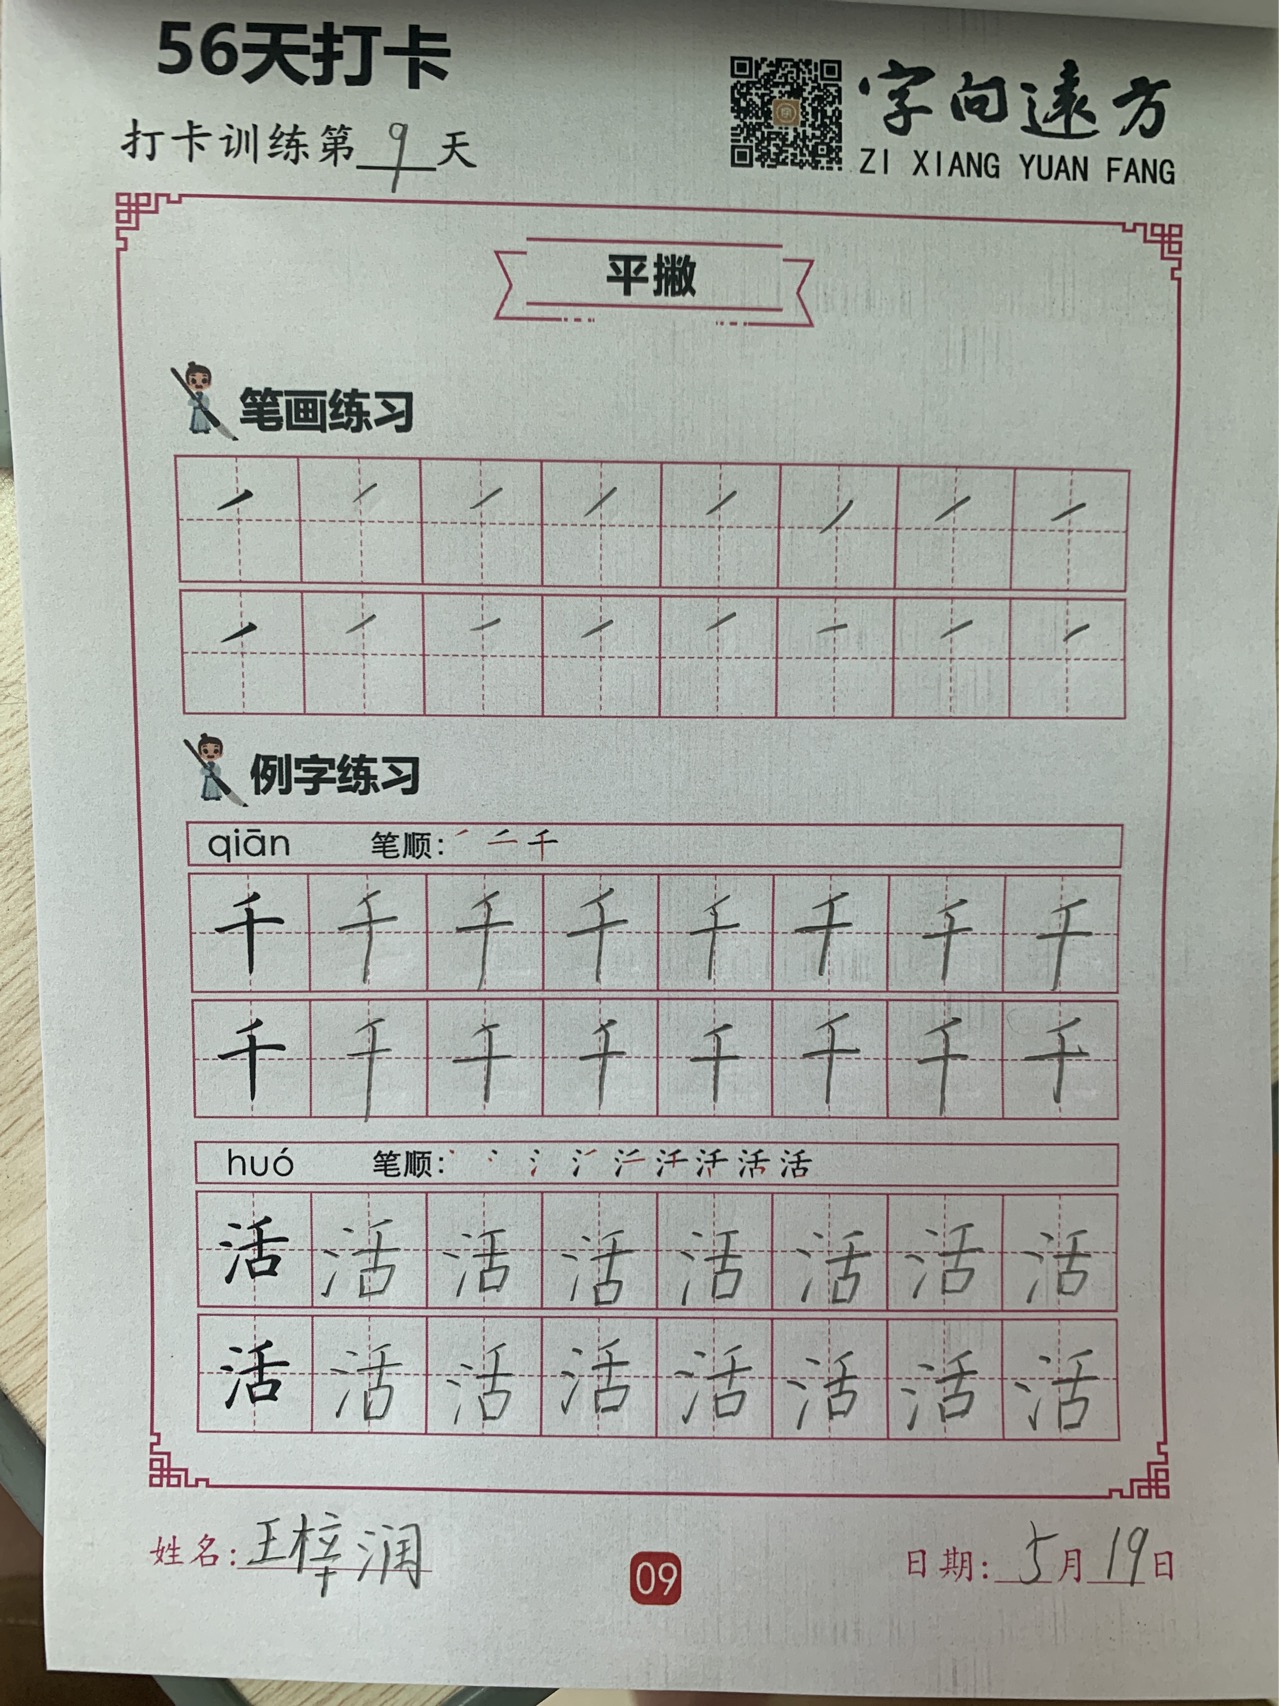 56天打卡
打卡训练第9天
字向遠方
ZI XIANG YUAN FANG
平撇
笔画练习
例字练习
qiān 笔顺:
千 千 千 千 千 千 千 千
千 千 千 千 千 千 千 千
huó 笔顺:
活 活 活 活 活 活 活 活
活 活 活 活 活 活 活 活
姓名:王梓润
09
日期:5月19日